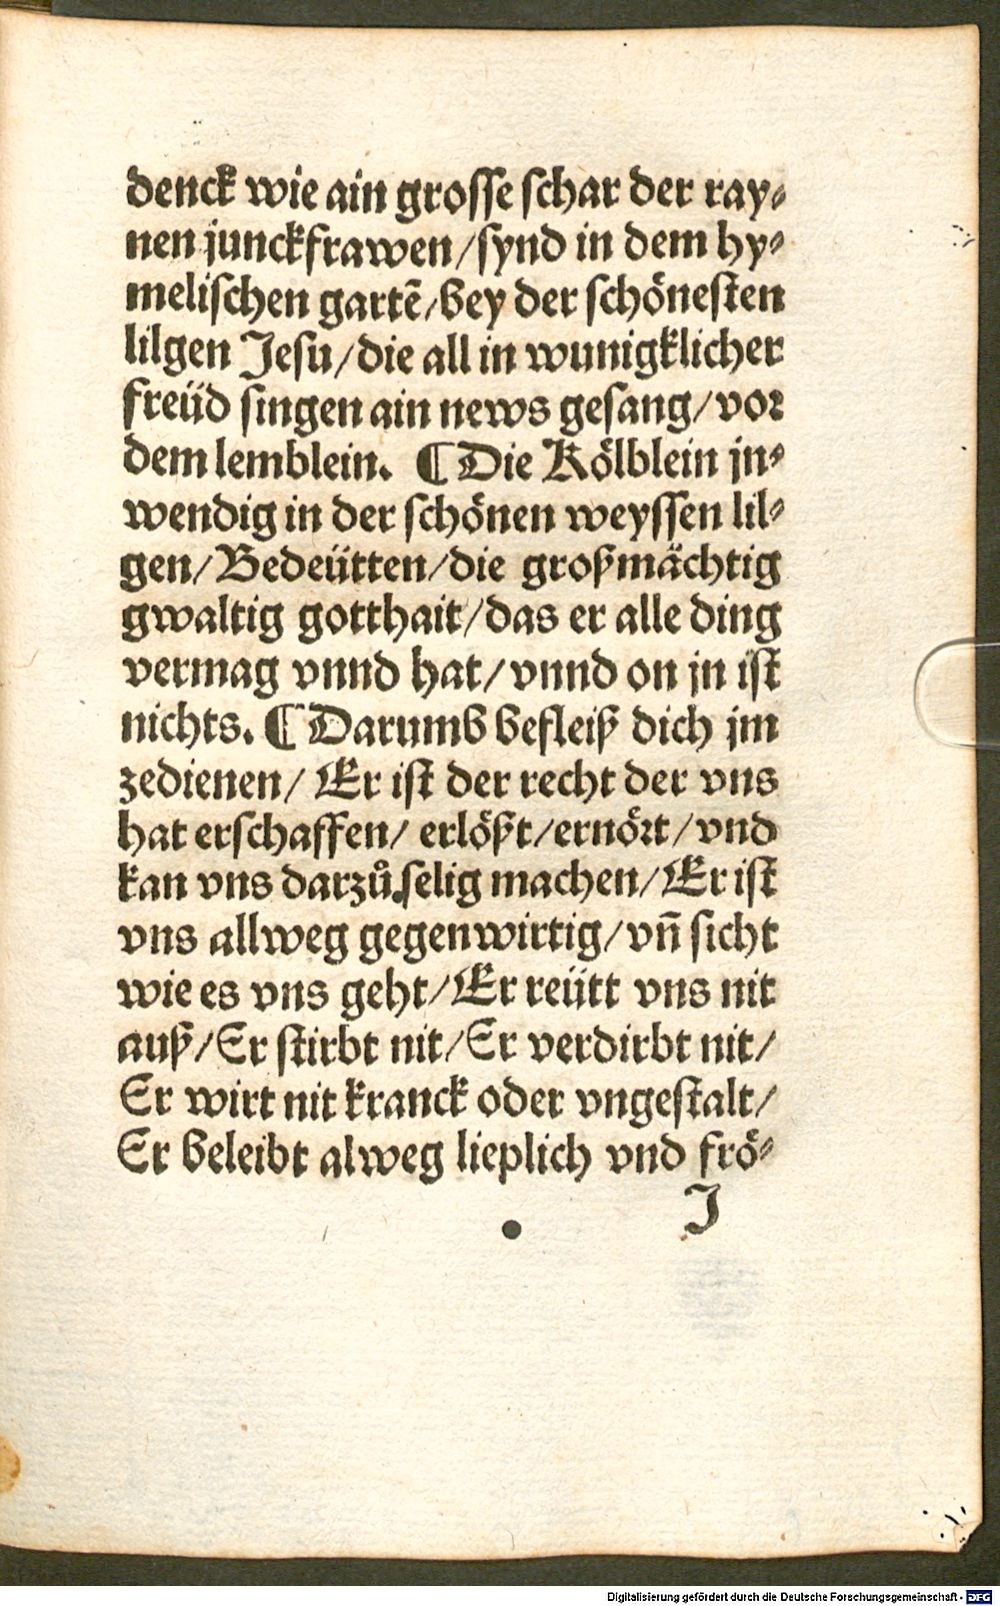 denck wie ain grosse schar der ray⸗
nen junckfrawen/synd in dem hy⸗
melischen gartẽ/bey der schönesten
lilgen Jesu/die all in wunigklicher
freüd singen ain news gesang/vor
dem lemblein. ¶ Die Kölblein jn⸗
wendig in der schönen weyssen lil⸗
gen/Bedeütten/die großmächtig
gwaltig gotthait/das er alle ding
vermag vnnd hat/vnnd on jn ist
nichts. ¶ Darumb befleiß dich jm
zedienen/ Er ist der recht der vns
hat erschaffen/ erlößt/ernört/vnd
kan vns darzů selig machen/Er ist
vns allweg gegenwirtig/vñ sicht
wie es vns geht/Er reütt vns nit
auß/Er stirbt nit/Er verdirbt nit/
Er wirt nit kranck oder vngestalt/
Er beleibt alweg lieplich vnd frö⸗
J
Digitalisierung gefördert durch die Deutsche Forschungsgemeinschaft - DFG